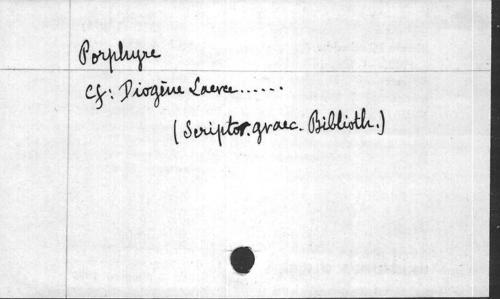 Porphyre
Cf: Diogène Laerce......
(Scriptor. graec. Biblioth.)